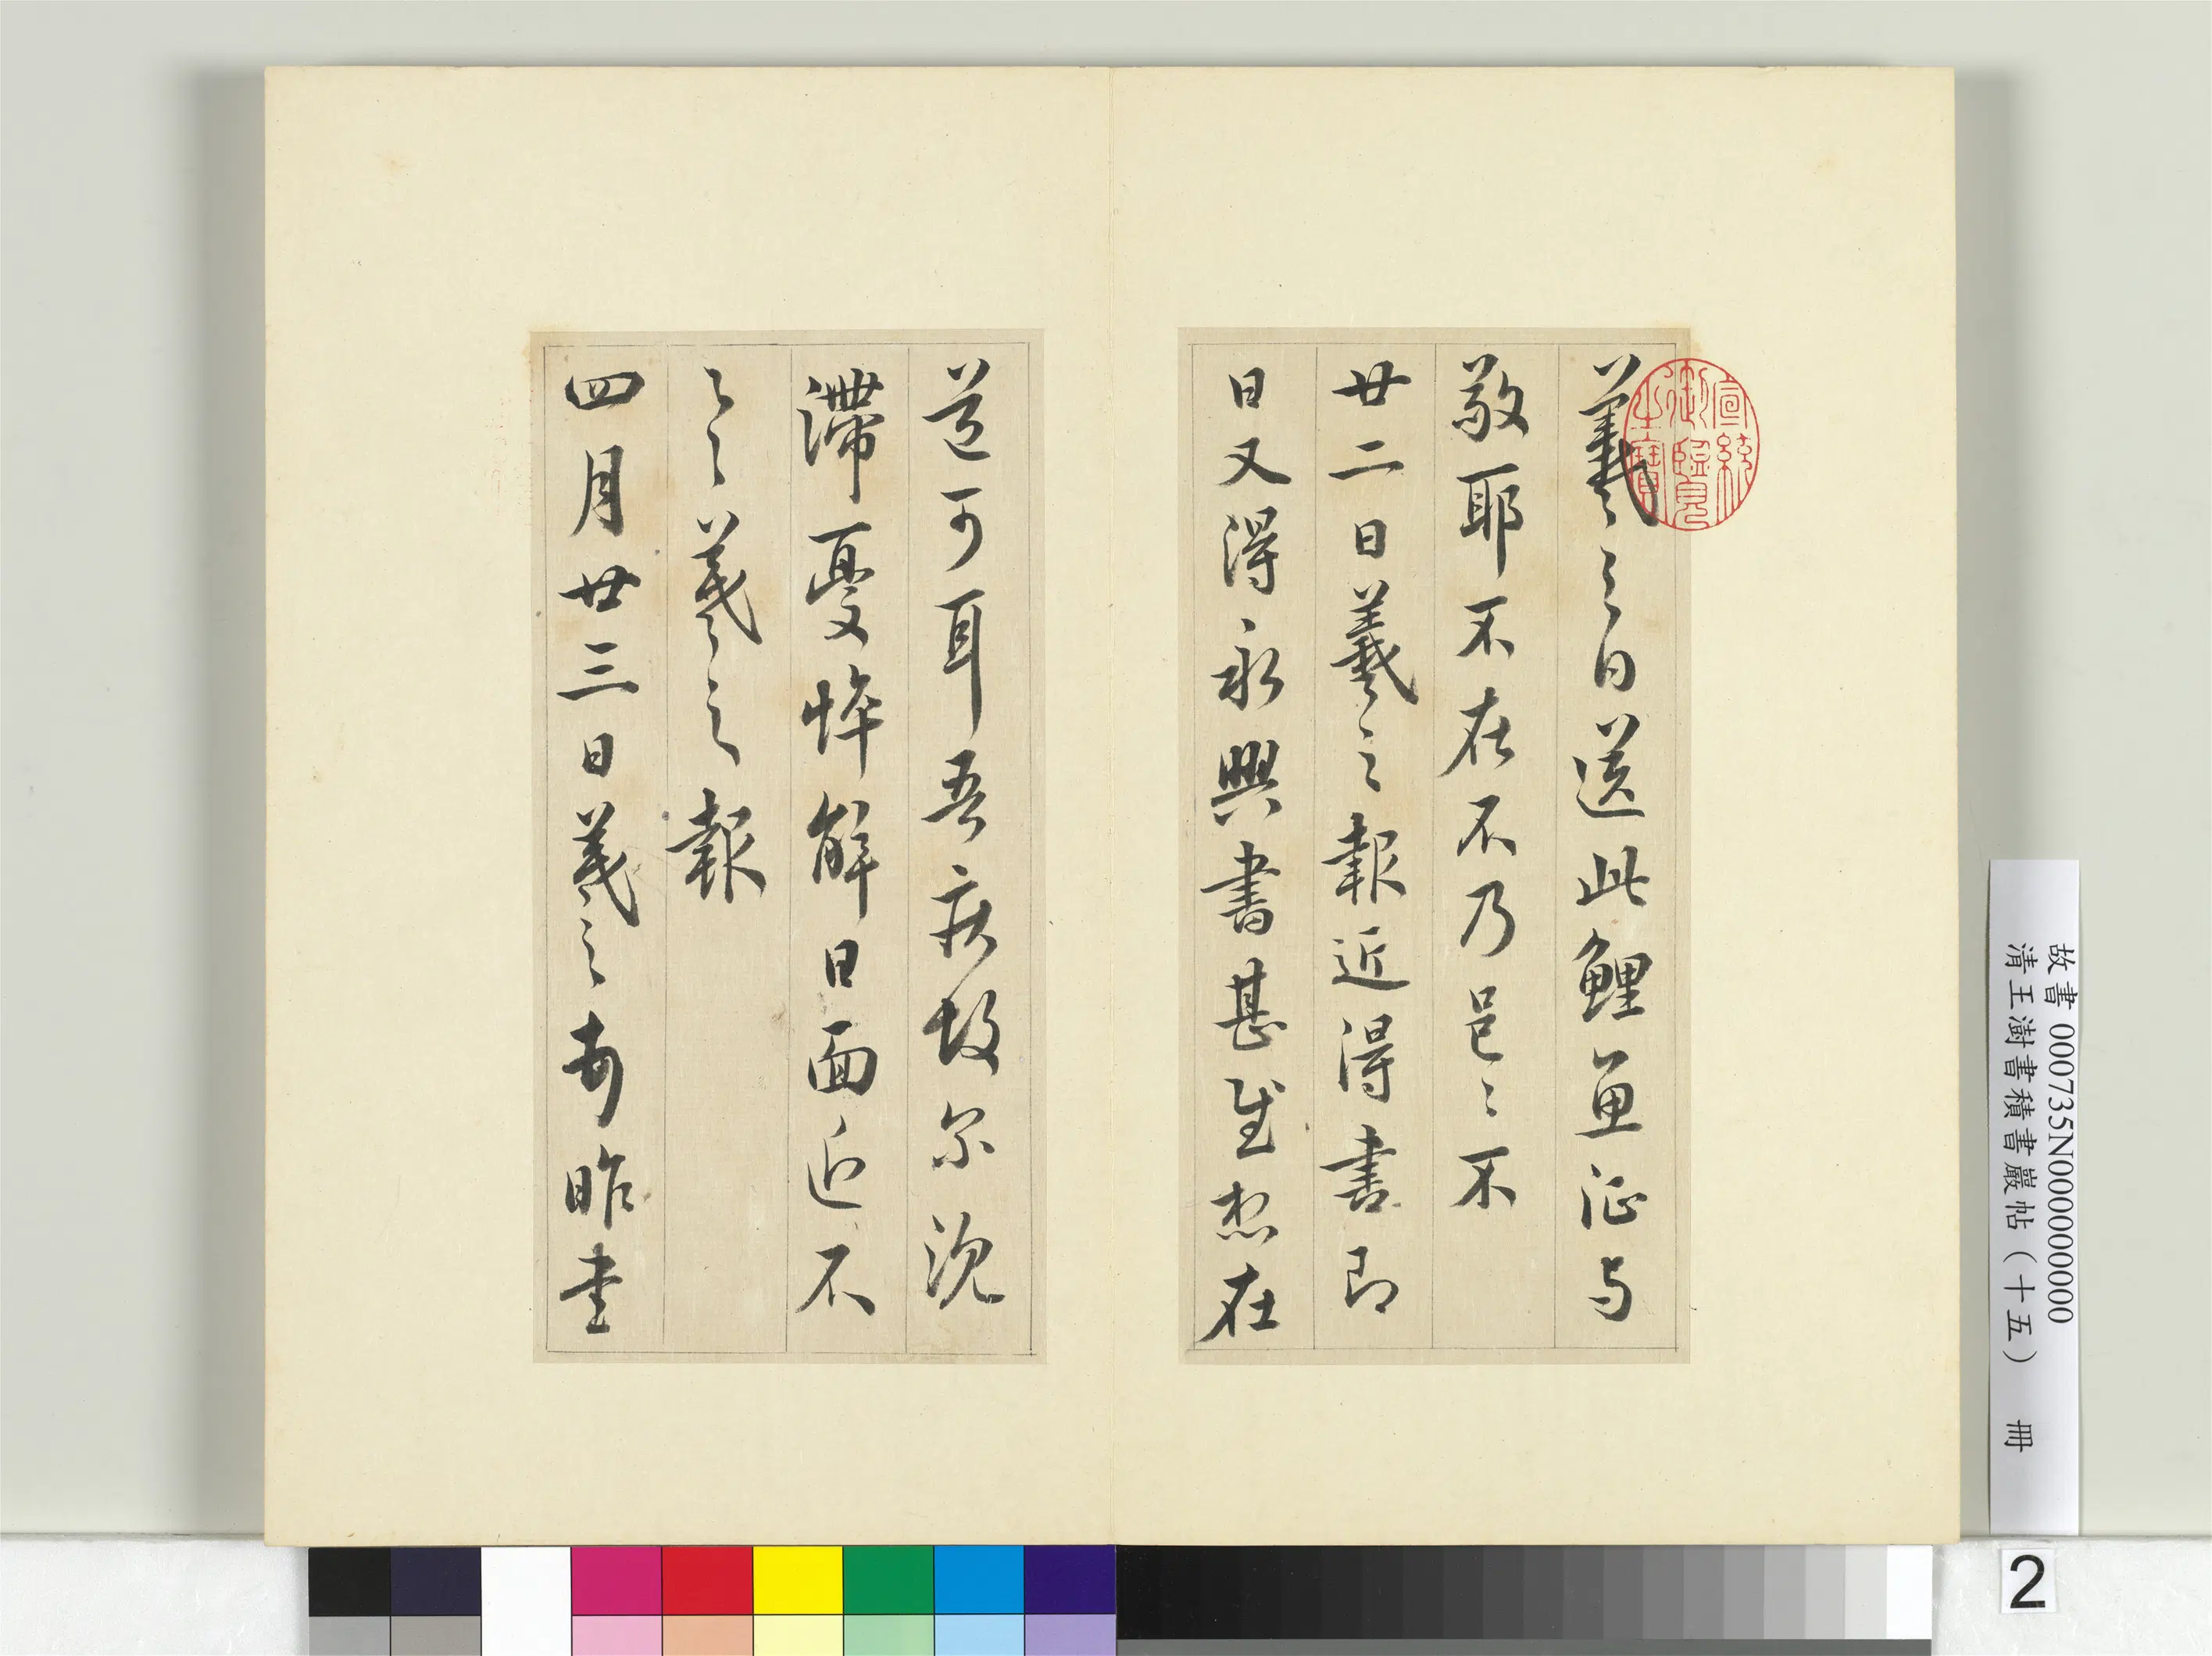 羲之白送此鯉魚征与
敬耶不在不乃邑〻不
廿二日羲之報近得書即
日又得永興書甚慰想在
道可耳吾疾故尔沉
滯憂悴解日面近不
具羲之報
四月廿三日羲之頓首昨書
宣統
御覽
之寶
故書 000735N000000000
清王澍書積書巖帖(十五) 冊
2